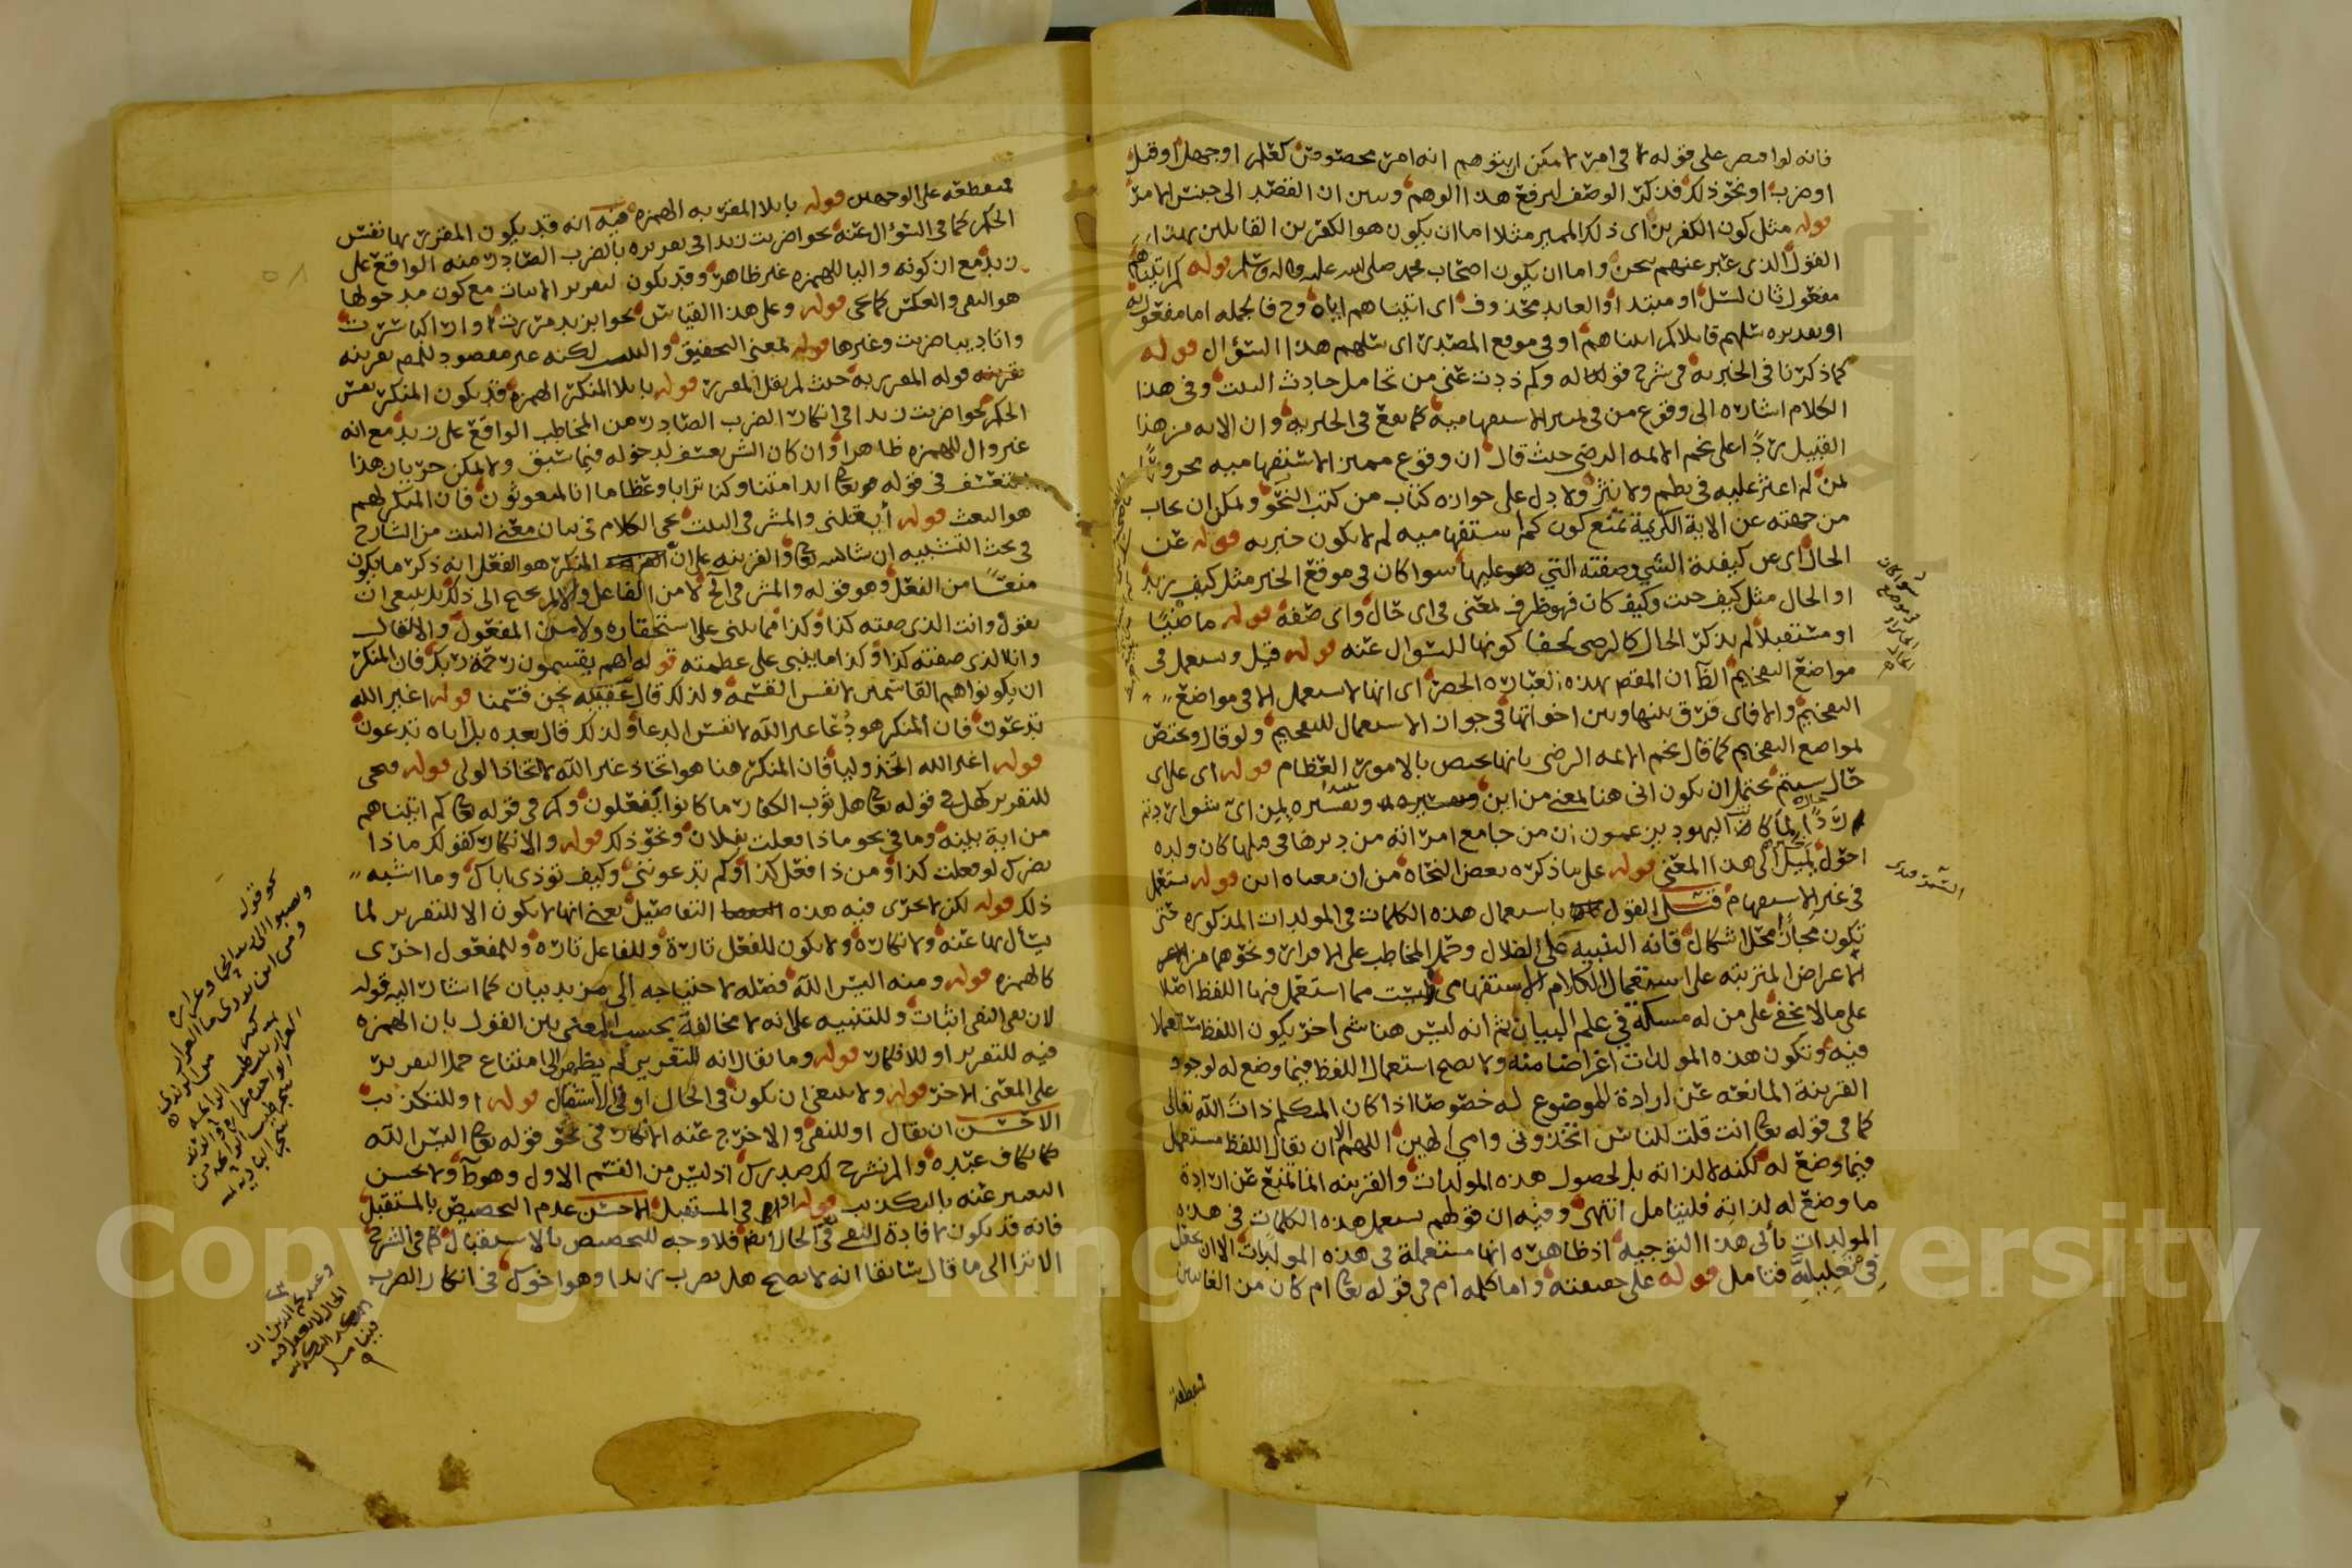 فانه لو اقتصر على قوله لا في امر لا مكن ان يتوهم انه امر مخصوص كعلم او جهل او قتل
او ضرب او نحو ذلك فذكر الوصف ليرفع هذا الوهم وبين ان القصد الى جنس الامر
قوله مثل كون الكفر بن اى ذلك المميز مثلا اما ان يكون هو الكفر بن القايلين بهذا
القول الذى عبر عنهم بنحن واما ان يكون اصحاب محمد صلى الله عليه واله وسلم قوله كم اتيناهم
مفعول ثان لسل او مبتدا والعايد محذوف اى اتيناهم اياه وح فالجمله اما مفعول به
او بتقديره سلهم قايلا كم اتيناهم او في موقع المصدر اى سلهم هذا السؤال قوله
كما ذكرنا في الخبريه في شرح قوله وكم ذدت عني من تحامل حادث البيت وفي هذا
الكلام اشاره الى وقوع من في مميز الاستفهاميه كما يقع في الخبريه وان الايه من هذا
القبيل ردا على نجم الايمه الرضى حيث قال ان وقوع مميز الاستفهاميه مجرورا
لمن لم اعثر عليه في نظم ولا نثر ولا دل على جوازه كتاب من كتب النحو ولمكن ان يجاب
من جهته عن الاية الكريمة بمنع كون كم استفهاميه لم لا يكون خبريه قوله عن
الحال اى عن كيفية الشي وصفته التي هو عليها سوا كان في موقع الخبر مثل كيف زيد
او الحال مثل كيف جيت وكيف كان فهو ظرف لمعنى في اى حال واى صفة قوله ماضيا
او مستقبلا لم يذكر الحال كالرضى لخفا كونها للسؤال عنه قوله قيل ويستعمل في
مواضع التفخيم الظ ان المقصد بهذه العباره الحصر اى انها لا يستعمل الا في مواضع
التفخيم والا فاى فرق بينها وبين اخواتها في جواز الاستعمال للتفخيم ولو قال ويختص
لمواضع التفخيم كما قال نجم الايمه الرضى بانها يختص بالامور العظام قوله اى على اى
حال شيتم يحتمل ان يكون انى هنا لمعنى من اين وتفسيره بمن اى شق اردتم
ردا لما كان اليهود يزعمون ان من جامع امراته من دبرها في قبلها كان ولده
احول يميل الى هذا المعنى قوله على ما ذكره بعض النحاه من ان معناه اين قوله يستعمل
في غير الاستفهام قيل القول باستعمال هذه الكلمات في المولدات المذكوره حتى
تكون مجازا محل اشكال فانه التنبيه على الضلال وحمل المخاطب على الاقرار ونحوهما من
الاعراض المترتبه على استعمال الكلام الاستفهامى وليست مما استعمل فيها اللفظ اصلا
على ما لا يخفى على من له مسكة في علم البيان ثم انه ليس هنا شى اخر يكون اللفظ مستعملا
فيه وتكون هذه المولدات اغراضا منه ولا يصح استعمال اللفظ فيما وضع له لوجود
القرينة المانعه عن ارادة الموضوع له خصوصا اذا كان المتكلم ذات الله تعالى
كما في قوله تعالى انت قلت للناس اتخذونى وامى الهين اللهم الا ان يقال اللفظ مستعمل
فيما وضع له لكنه لا لذاته بل لحصول هذه المولدات والقرينه انما تمنع عن ارادة
ما وضع له لذاته فليتامل انتهى وفيه ان قولهم يستعمل هذه الكلمات في هذه
المولدات يأبى هذا التوجيه اذ ظاهره انها مستعملة في هذه المولدات الا ان يجعل
في تعليليه فتامل قوله على حقيقته واما كلمه ام في قوله تعالى ام كان من الغايبين
منقطعة
منقطعه على الوجهين قوله بايلا المقرر به الهمزه فيه انه قد يكون المقرر بها نفس
الحكم كما في السؤال عنه نحو اضربت زيدا في تقريره بالضرب الصادر منه الواقع على
زيد مع ان كونه واليا للهمزه غير ظاهر وقد يكون لتقرير الاثبات مع كون مدخولها
هو النفى والعكس كما يجى قوله وعلى هذا القياس نحو ابزيد مررت او ا راكبا سرت
واتاديبا ضربت وغيرها قوله لمعنى التحقيق والتثبيت لكنه غير مقصود للمصم بقرينه
بقرينه قوله المقرر به حيث لم يقل المقرر قوله بايلا المنكر الهمزه قد يكون المنكر نفس
الحكم نحو اضربت زيدا في انكار الضرب الصادر من المخاطب الواقع على زيد مع انه
غير وال للهمزه ظاهرا وان كان الش يعتذر لدخوله فيما سبق ولا يمكن جريان هذا
التعسف في قوله تعالى ائذا متنا وكنا ترابا وعظاما انا لمبعوثون فان المنكر لهم
هو البعث قوله أيقتلنى والمشرفى البيت يجى الكلام في بيان معنى البيت من الشارح
في بحث التشبيه ان شا الله تعالى والقرينه على ان المنكر هو الفعل انه ذكر ما يكون
منعا من الفعل وهو قوله والمشرفى الخ لا من الفاعل والا لم يحتج الى ذلك بل ينبغى ان
يقول وانت الذى صفته كذا وكذا مما يدل على استحقاره ولا من المفعول والا لقال
وانا الذى صفته كذا وكذا مما ينبى على عظمته قوله اهم يقسمون رحمة ربك فان المنكر
ان يكونوا هم القاسمين لا نفس القسمه ولذلك قال عقيبه نحن قسمنا قوله اغير الله
تدعون فان المنكر هو دعا غير الله لا نفس الدعا ولذلك قال بعده بل اياه تدعون
قوله اغير الله اتخذ وليا فان المنكر هنا هو اتخاذ غير الله لا اتخاذ الولى قوله فيجى
للتقرير كهل في قوله تعالى هل ثوب الكفار ما كانوا يفعلون وكم في قوله تعالى كم اتيناهم
من اية بينه وما في نحو ماذا فعلت بفلان ونحو ذلك قوله والانكار كقولك ماذا
يضرك لو فعلت كذا ومن ذا فعل كذا وكم تدعوننى وكيف تؤذى اباك وما اشبه
ذلك قوله لكن لا يجرى فيه هذه التفاصيل يعنى انها لا يكون الا للتقرير لما
يسأل بها عنه ولانكاره ولا يكون للفعل تارة وللفاعل تاره وللمفعول اخرى
كالهمزه قوله ومنه اليس الله فصله لاحتياجه الى مزيد بيان كما اشار اليه قوله
لان نفى النفى اثبات وللتنبيه على انه لا مخالفة بحسب المعنى بين القول بان الهمزه
فيه للتقرير او للانكار قوله وما يقال انه للتقرير لم يظهر لى امتناع حمل التقرير
على المعنى الاخر قوله ولا ينبغى ان يكون في الحال او في الاستقبال قوله او للتكذيب
الاحسن ان يقال او للنفى والا خرج عنه الانكار في نحو قوله تعالى اليس الله
بكاف عبده والم نشرح لك صدرك اذ ليس من القسم الاول وهو ظ ولا يحسن
التعبير عنه بالتكذيب قوله او في المستقبل الاحسن عدم التخصيص بالمستقبل
فانه قد يكون لافادة النفى في الحال ايضا فلا وجه للتخصيص بالاستقبال كما في الشرح
الا ترى الى ما قال سابقا انه لا يصح هل تضرب زيدا وهو اخوك في انكار الضرب
Copyright © King Saud University